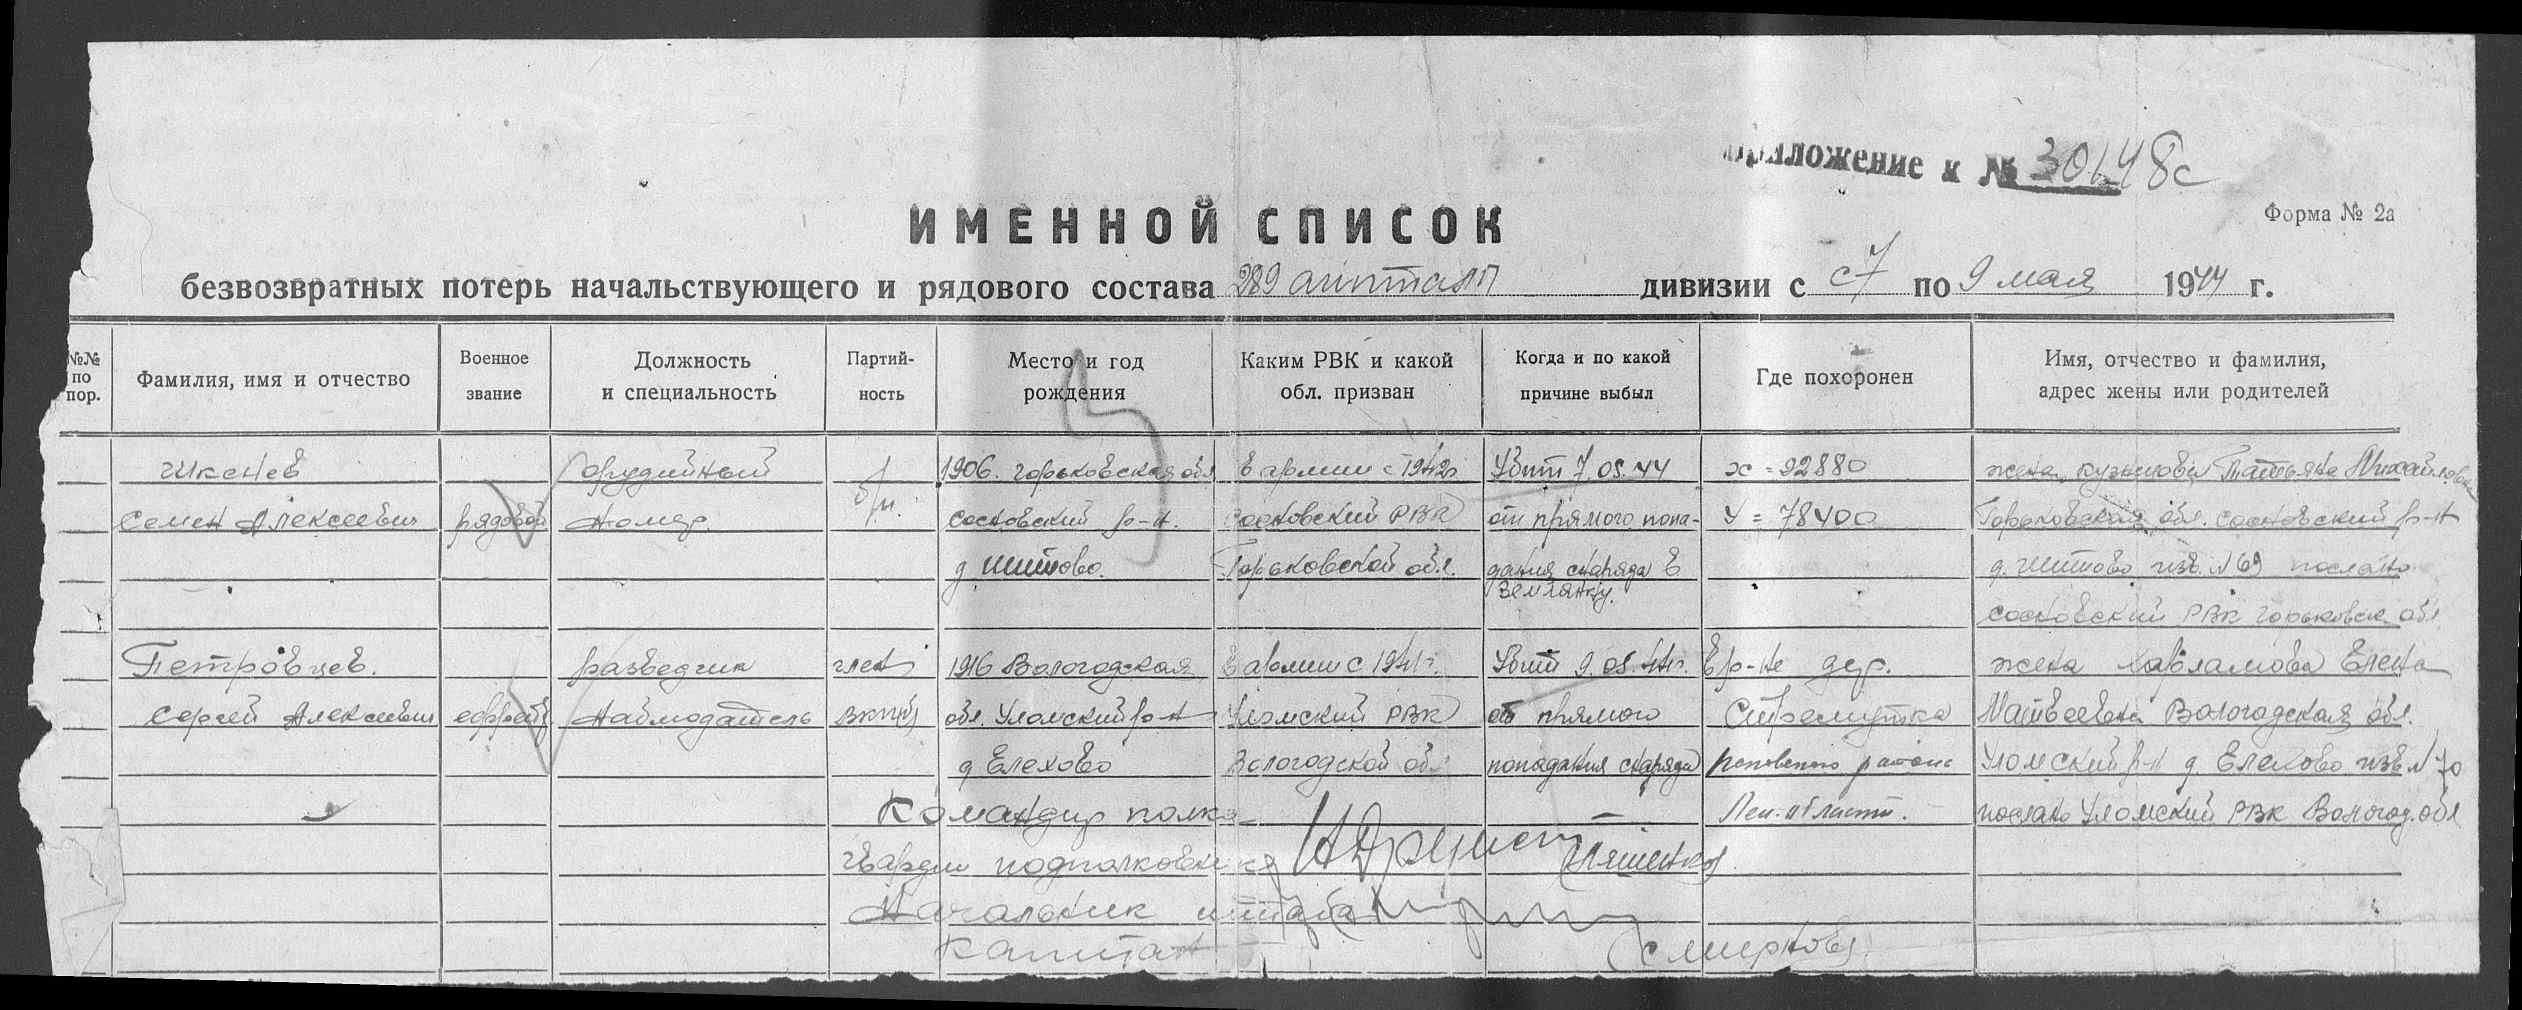 Приложение к № 30648с
Форма № 2а
ИМЕННОЙ СПИСОК
безвозвратных потерь начальствующего и рядового состава 289 аиптап дивизии с с 7 по 9 мая 1944 г.
№№ по пор.
Фамилия, имя и отчество
Военное звание
Должность и специальность
Партий-ность
Место и год рождения
Каким РВК и какой обл. призван
Когда и по какой причине выбыл
Где похоронен
Имя, отчество и фамилия, адрес жены или родителей
Чикенев орудийный б/п. 1906. Горьковская обл В армии с 1942г Убит 7.05.44 х = 92880 жена Татьяна Михайловна
Семен Алексеевич рядовой номер сосновский р-н. Сосновский РВК от прямого попа- У = 78400 Горьковская обл. сосновский р-н
д. Шитово. Горьковской обл. дания снаряда в д. Шитово изв. №69 послано
землянку.
сосновский РВК горьковск. обл.
Петровцев. разведчик член 1916 Вологодская В армии с 1941г. Убит 9.05.44г. В р-не дер. жена Харламова Елена
Сергей Алексеевич ефрейт наблюдатель ВКП(б) обл. Уломский р-н Уломский РВК от прямого Стремутка Матвеевна Вологодская обл.
д Елехово Вологодской обл. попадания снаряда района Уломский р-н д. Елехово изв. №70
Лен. области. послано Уломский РВК Вологод. обл
Командир полка
гвардии подполковник
Начальник штаба
Капитан (Смирнов)